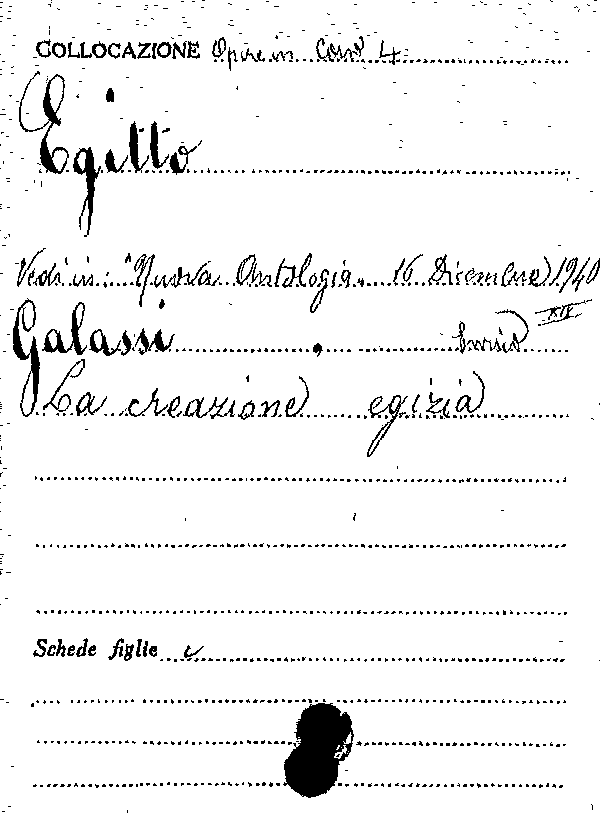 COLLOCAZIONE Opere in Cons 4
Egitto
Vedi in: "Nuova Antologia" 16 Dicembre 1940
XIX
Galassi,
La creazione egizia
Schede figlie